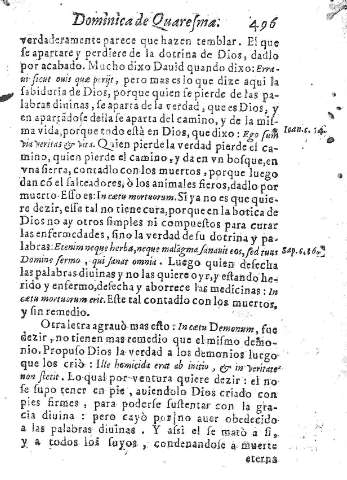 Dominica de Quaresma. 496
verdaderamente parece que hazen temblar. El que
se apartare y perdiere de la dotrina de Dios, dadlo
por acabado. Mucho dixo Dauid quando dixo: Erra-
ui sicut ouis quæ perijt, pero mas es lo que dize aqui la
sabiduria de Dios, porque quien se pierde de las pa-
labras diuinas, se aparta de la verdad, que es Dios, y en
apartādose della se aparta del camino, y de la mis-
ma vida, porque todo està en Dios, que dixo: Ego sum
via veritas & vita. Quien pierde la verdad pierde el ca-
mino, quien pierde el camino, y da en vn bosque, en
vna sierra, contadlo con los muertos, porque luego
dan cō el salteadores, ò los animales fieros, dadlo por
muerto Esso es: In cœtu mortuorum. Si ya no es que quie-
re dezir, esse tal no tiene cura, porque en la botica de
Dios no ay otros simples ni compuestos para curar
las enfermedades, sino la verdad de su dotrina y pa-
labras: Etenim neque herba, neque malagma sanauit eos, sed tuus
Domine sermo, qui sanat omnia. Luego quien desecha
las palabras diuinas y no las quiere oyr, y estando he-
rido y enfermo, desecha y aborrece las medicinas: In
cœtu mortuorum erit. Este tal contadlo con los muertos,
y sin remedio.
Otra letra agrauò mas esto: In cœtu Demonum, fue
dezir, no tienen mas remedio que el mismo demo-
nio. Propuso Dios la verdad a los demonios luego
que los criò: Ille homicida erat ab initio, & in veritate
non stetit. Lo qual por ventura quiere dezir: el no
se supo tener en pie, auiendolo Dios criado con
pies firmes, para poderse sustentar con la gra-
cia diuina: pero cayò por no auer obedecido
a las palabras diuinas. Y assi el se matò a si,
y a todos los suyos, condenandose a muerte
eterna
Ioan. c. 14.
Sap. c. 16.